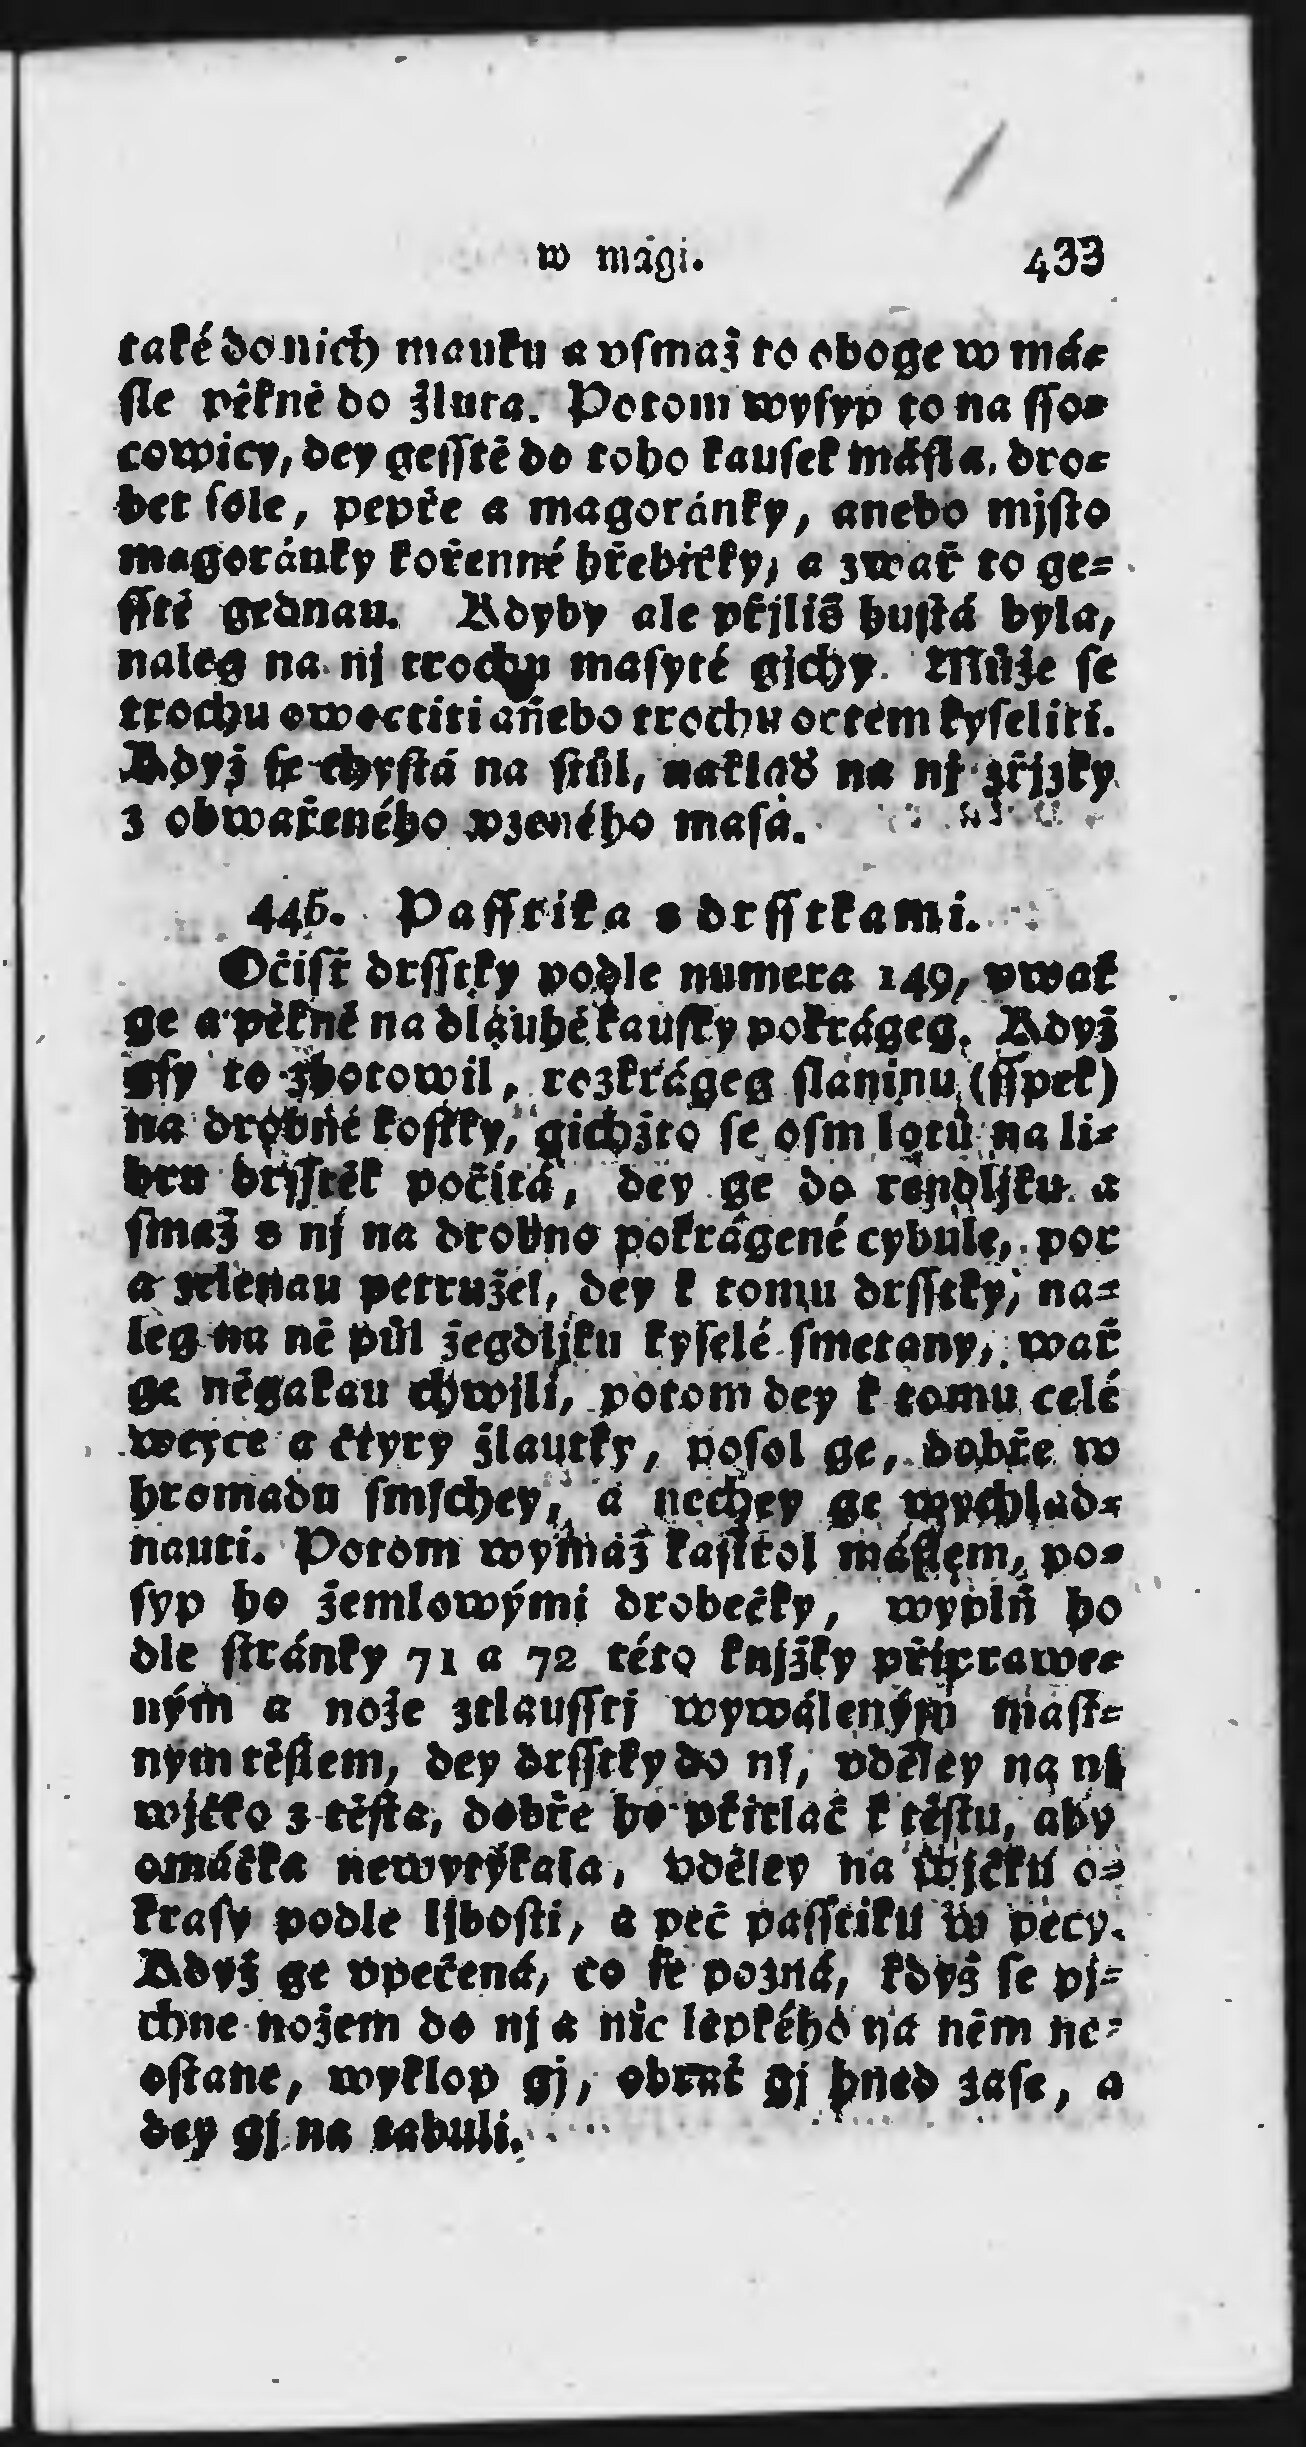 w mági. 433
také do nich mauku a vſmaž to oboge w má-
ſle pěkně do žluta. Potom wyſyp to na ſſo-
cowicy, dey geſſtě do toho kauſek máſla, dro-
bet ſole, pepře a magoránky, anebo mjſto
magoránky kořenné hřebičky, a zwař to ge-
ſſtě gednau. Kdyby ale přjliš huſtá byla,
naleg na nj trochu maſyté gjchy. Může ſe
trochu owoctiti anebo trochu octem kyſeliti.
Když ſe chyſtá na ſtůl, naklaď na nj zřjzky
z obwařeného vzeného maſa.
446. Paſſtika s drſſtkami.
Očiſť drſſtky podle numera 149, vwař
ge a pěkně na dlauhé kauſky pokrágeg. Když
gſy to zhotowil, rozkrágeg ſlaninu (ſſpek)
na drobné koſtky, gichžto ſe oſm lotů na li-
bru drſſtěk počítá, dey ge do rendljku a
ſmaž s nj na drobno pokrágené cybule, por
a zelenau petružel, dey k tomu drſſtky, na-
leg na ně půl žegdljku kyſelé ſmetany, wař
ge něgakau chwjli, potom dey k tomu celé
weyce a čtyry žlautky, poſol ge, dobře w
hromadu ſmjchey, a nechey ge wychlad-
nauti. Potom wymaž kaſtrol máſlem, po-
ſyp ho žemlowými drobečky, wyplň ho
dle ſtránky 71 a 72 této knjžky připrawe-
ným a nože ztlauſſtj wywáleným maſt-
ným těſtem, dey drſſtky do nj, vděley na nj
wjčko z těſta, dobře ho přitlač k těſtu, aby
omáčka newytýkala, vděley na wjčku o-
kraſy podle ljboſti, a peč paſſtiku w pecy.
Když ge vpečená, co ſe pozná, když ſe pj-
chne nožem do nj a nic lepkého na něm ne-
oſtane, wyklop gj, obrať gj hned zaſe, a
dey gj na tabuli.